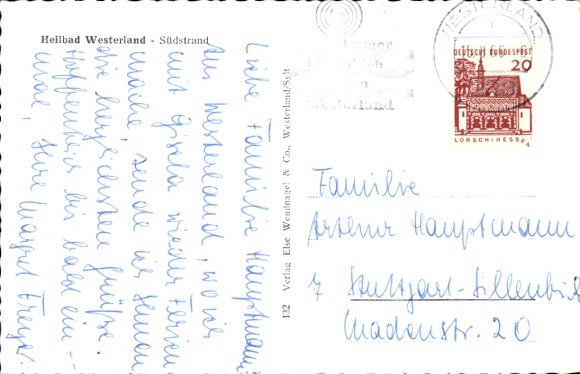 Heilbad Westerland - Südstrand
Liebe Familie Hauptmann!
Aus Westerland, wo wir
mit Gisela wieder Ferien
machen sende ich Ihnen
die herzlichsten Grüße.
Hoffentlich bis bald ein-
mal, Ihre Margret Freyer.
132 Verlag Else Wendnagel & Co., Westerland/Sylt
Westerland
WESTERLAND
DEUTSCHE BUNDESPOST
20
LORSCH/HESSEN
Familie
Artur Hauptmann
7 Stuttgart-Sillenbuch
20